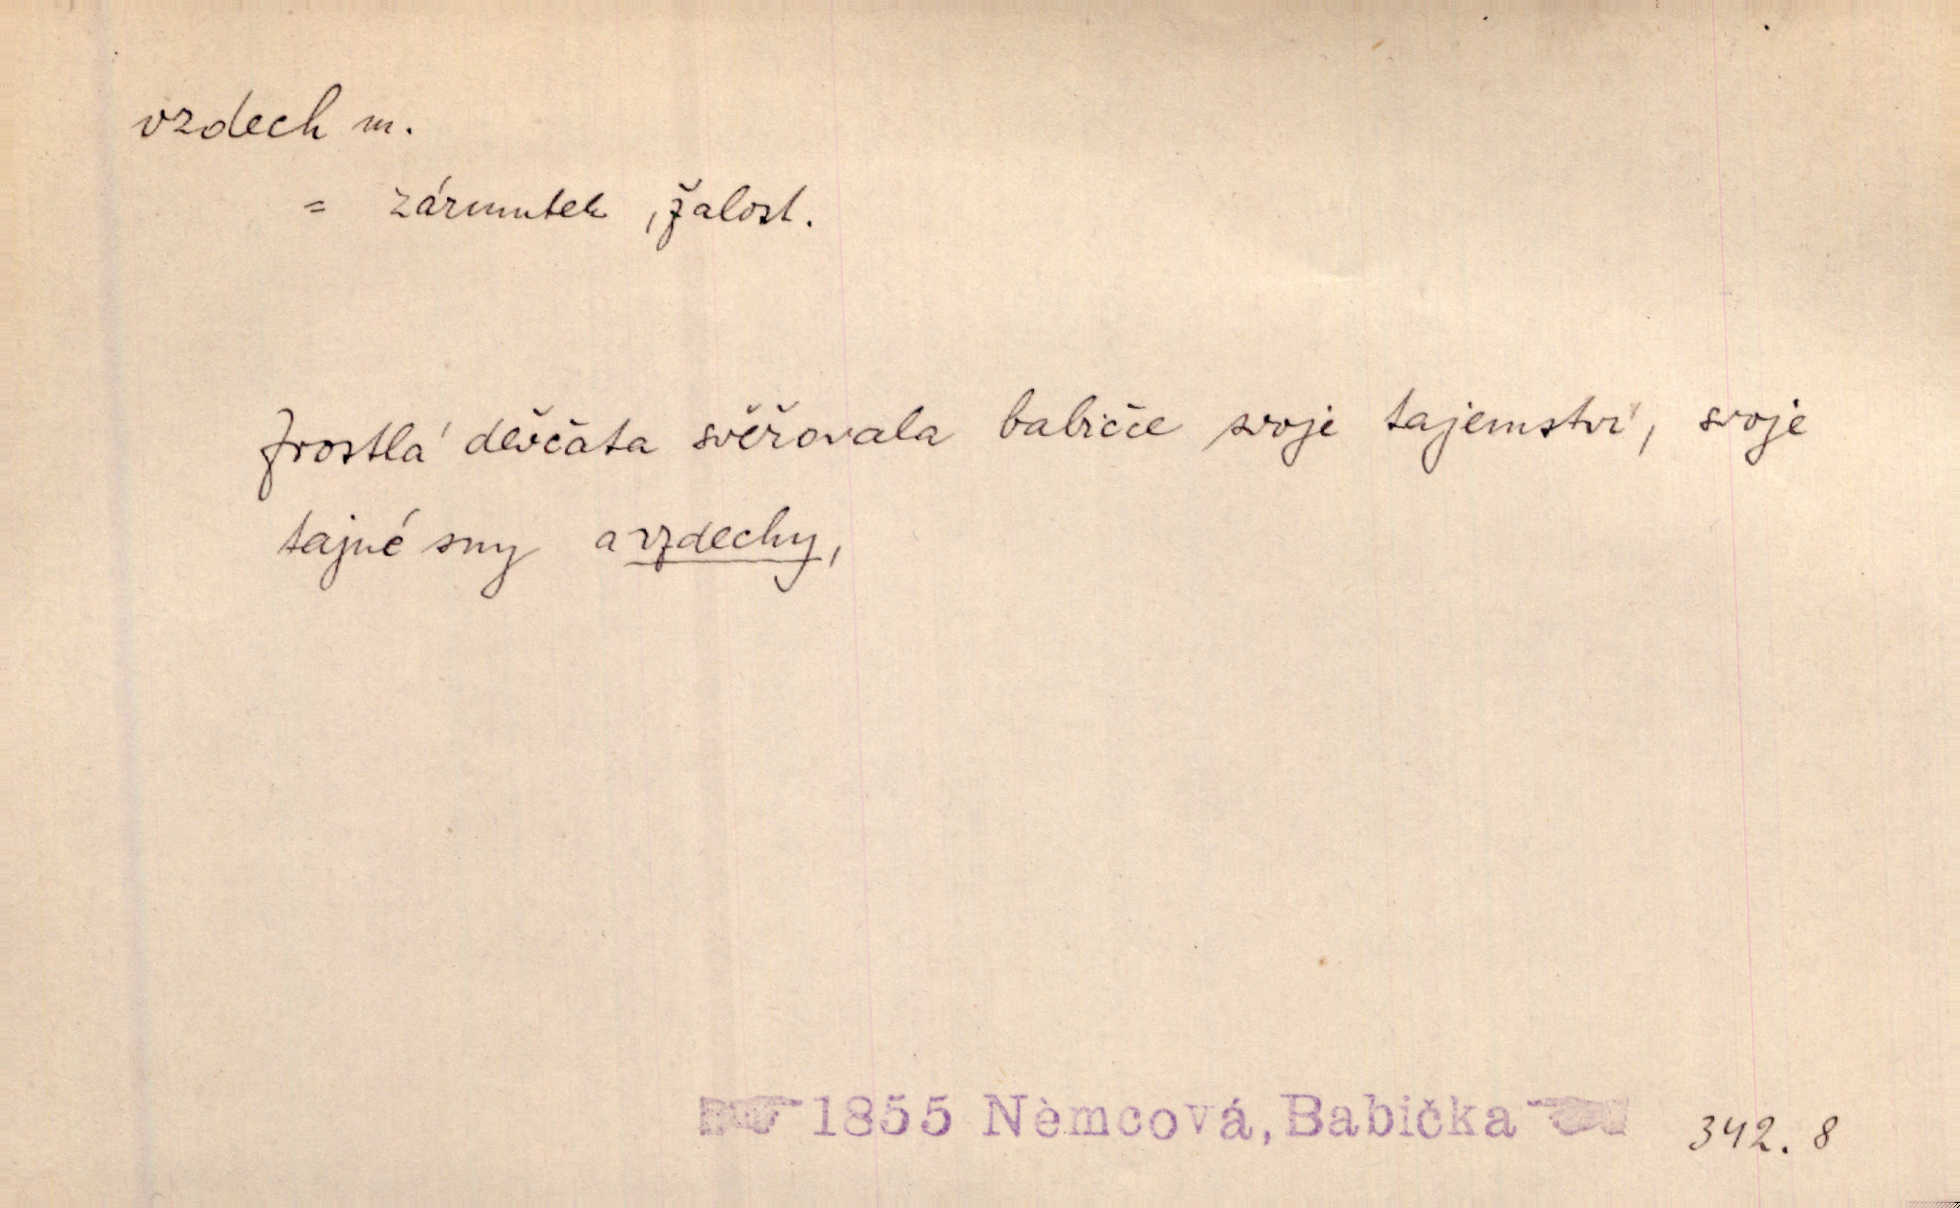 vzdech m.
= zármutek, žalost.
Zrostlá děvčata svěřovala babičce svoje tajemství, svoje
tajné sny a vzdechy,
1855 Němcová, Babička 342. 8